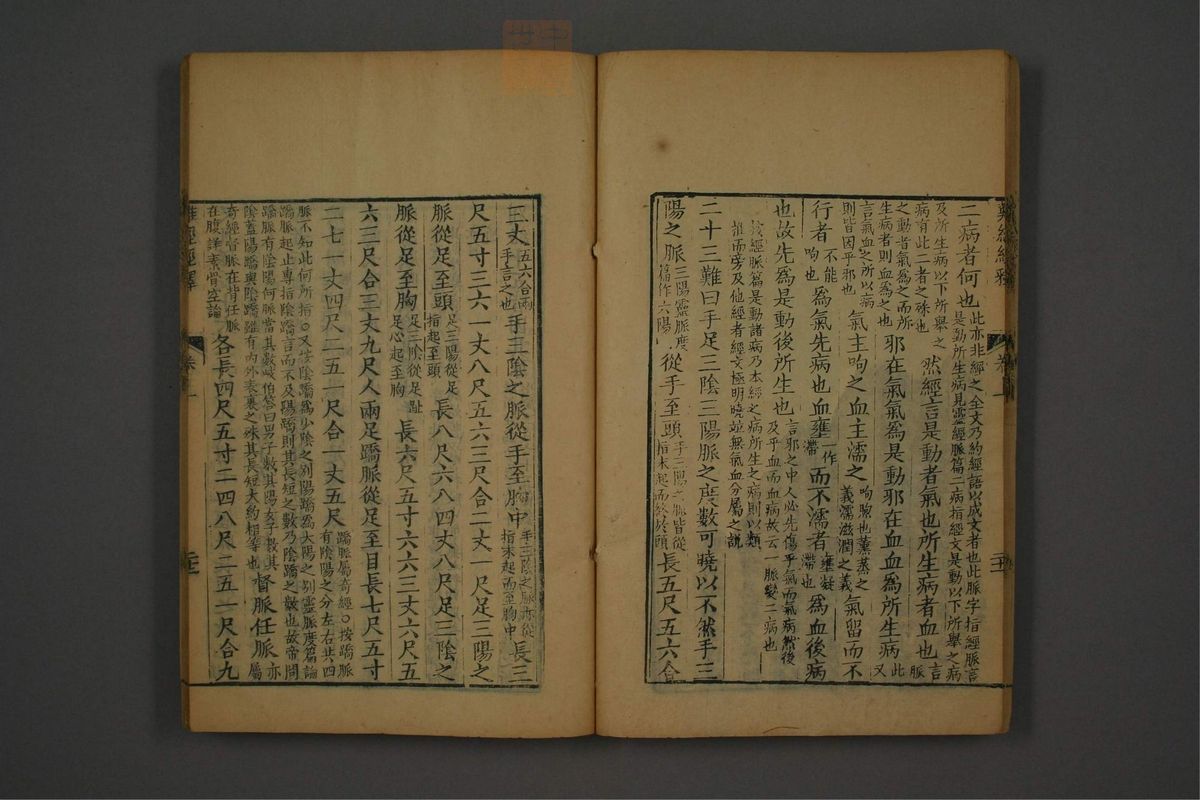 難經經釋
二病者何也此亦非經之全文乃約經語以成文者也此脈字指經脈言
是動所生病見靈經脈篇二病指經文是動以下所舉之病
及所生病以下所舉之
病有此二者之殊也
然經言是動者氣也所生病者血也言
脈
之動者氣爲之而所
生病者則血爲之也
邪在氣氣爲是動邪在血血爲所生病此
又
言氣血之所以病
則皆因乎邪也
氣主呴之血主濡之呴煦也薰蒸之
義濡滋潤之義
氣留而不
行者不能
呴也
爲氣先病也血壅一作
滯
而不濡者壅凝
滯也
爲血後病
也故先爲是動後所生也言邪之中人必先傷乎氣而氣病然後
及乎血而血病故云一脈變二病也
按經脈篇是動諸病乃本經之病所生之病則以類
推而旁及他經者經文極明曉並無氣血分屬之說
二十三難曰手足三陰三陽脈之度數可曉以不然手三
陽之脈三陽靈脈度
篇作六陽
從手至頭手三陽之脈皆從
指末起而終於頭
長五尺五六合
三丈五六合兩
手言之也
手三陰之脈從手至胸中手三陰之脈亦從
指末起而至胸中
長三
尺五寸三六一丈八尺五六三尺合二丈一尺足三陽之
脈從足至頭足三陽從足
指起至頭
長八尺六八四丈八尺足三陰之
脈從足至胸足三陰從足趾
足心起至胸
長六尺五寸六六三丈六尺五
六三尺合三丈九尺人兩足蹻脈從足至目長七尺五寸
二七一丈四尺二五一尺合一丈五尺蹻脈屬奇經〇按蹻脈
有陰陽之分左右共四
脈不知此何所指〇又按陰蹻爲少陰之別陽蹻爲太陽之別靈脈度篇論
蹻脈起止專指陰蹻言而不及陽蹻則其長短之數乃陰蹻之數也故帝問
蹻脈有陰陽何脈當其數岐伯答曰男子數其陽女子數其
陰蓋陽蹻與陰蹻雖有內外表裏之殊其長短大約相等也
督脈任脈亦
屬
奇經督脈在背任脈
在腹詳素骨空論
各長四尺五寸二四八尺二五一尺合九
難經經釋